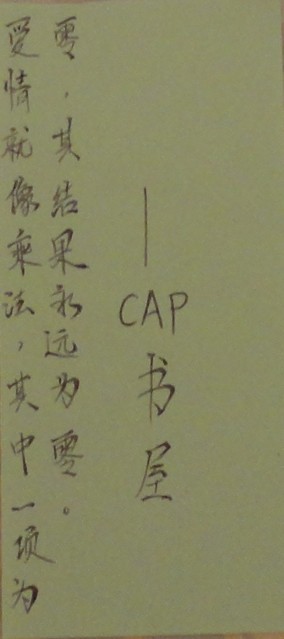 爱情就像乘法，其中一项为
零，其结果永远为零。
——CAP书屋